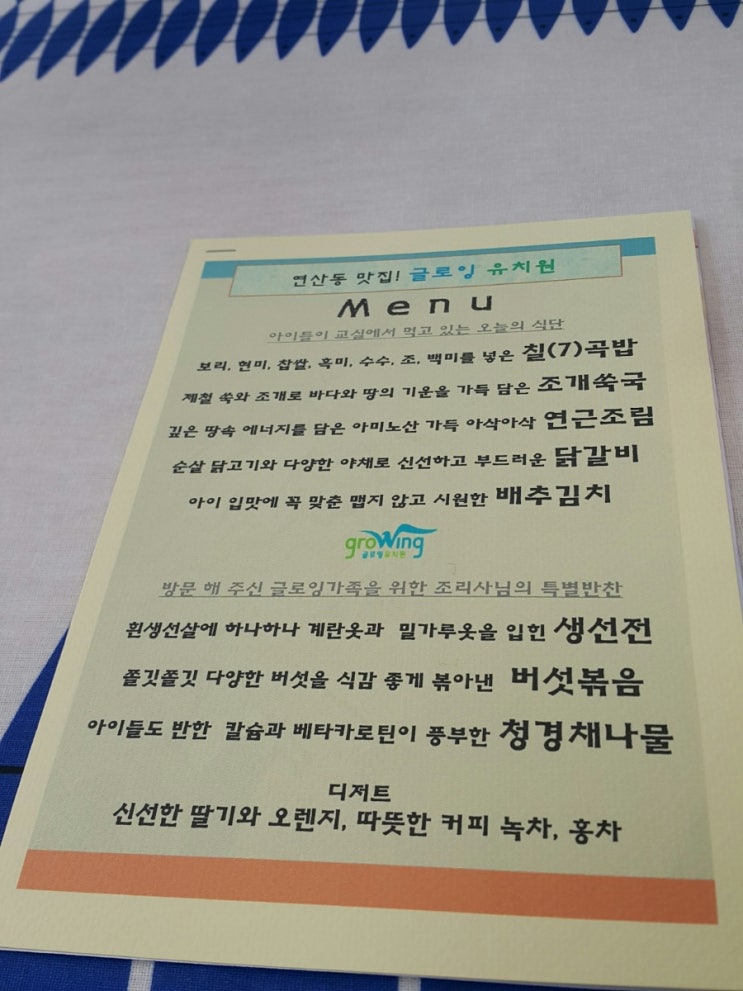 연산동 맛집! 글로잉 유치원
Menu
아이들이 교실에서 먹고 있는 오늘의 식단
보리, 현미, 찹쌀, 흑미, 수수, 조, 백미를 넣은 칠(7)곡밥
제철 쑥와 조개로 바다와 땅의 기운을 가득 담은 조개쑥국
깊은 땅속 에너지를 담은 아미노산 가득 아삭아삭 연근조림
순살 닭고기와 다양한 야채로 신선하고 부드러운 닭갈비
아이 입맛에 꼭 맞춘 맵지 않고 시원한 배추김치
growing
글로잉유치원
방문 해 주신 글로잉가족을 위한 조리사님의 특별반찬
흰생선살에 하나하나 계란옷과 밀가루옷을 입힌 생선전
쫄깃쫄깃 다양한 버섯을 식감 좋게 볶아낸 버섯볶음
아이들도 반한 칼슘과 베타카로틴이 풍부한 청경채나물
디저트
신선한 딸기와 오렌지, 따뜻한 커피 녹차, 홍차